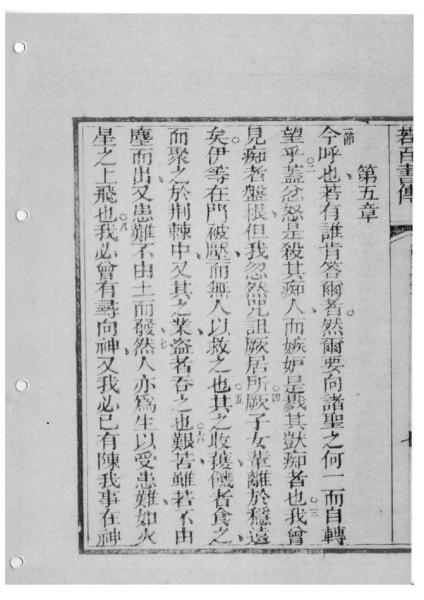 若百書傳
第五章
一節今呼也若有誰肯答爾者然爾要向諸聖之何一而自轉
望乎二蓋忿怒是殺其痴人而嫉妒是戮其獃痴者也三我曾
見痴者盤根但我忽然咒詛厥居所四厥子女輩離於穩遠
矣伊等在門被壓而無人以救之也五其之收穫饑者食之
而聚之於荆棘中又其之業盜者吞之也六艱苦雖若不由
塵而出又患難不由土而發七然人亦為生以受患難如火
星之上飛也八我必曾有尋向神又我必已有陳我事在神